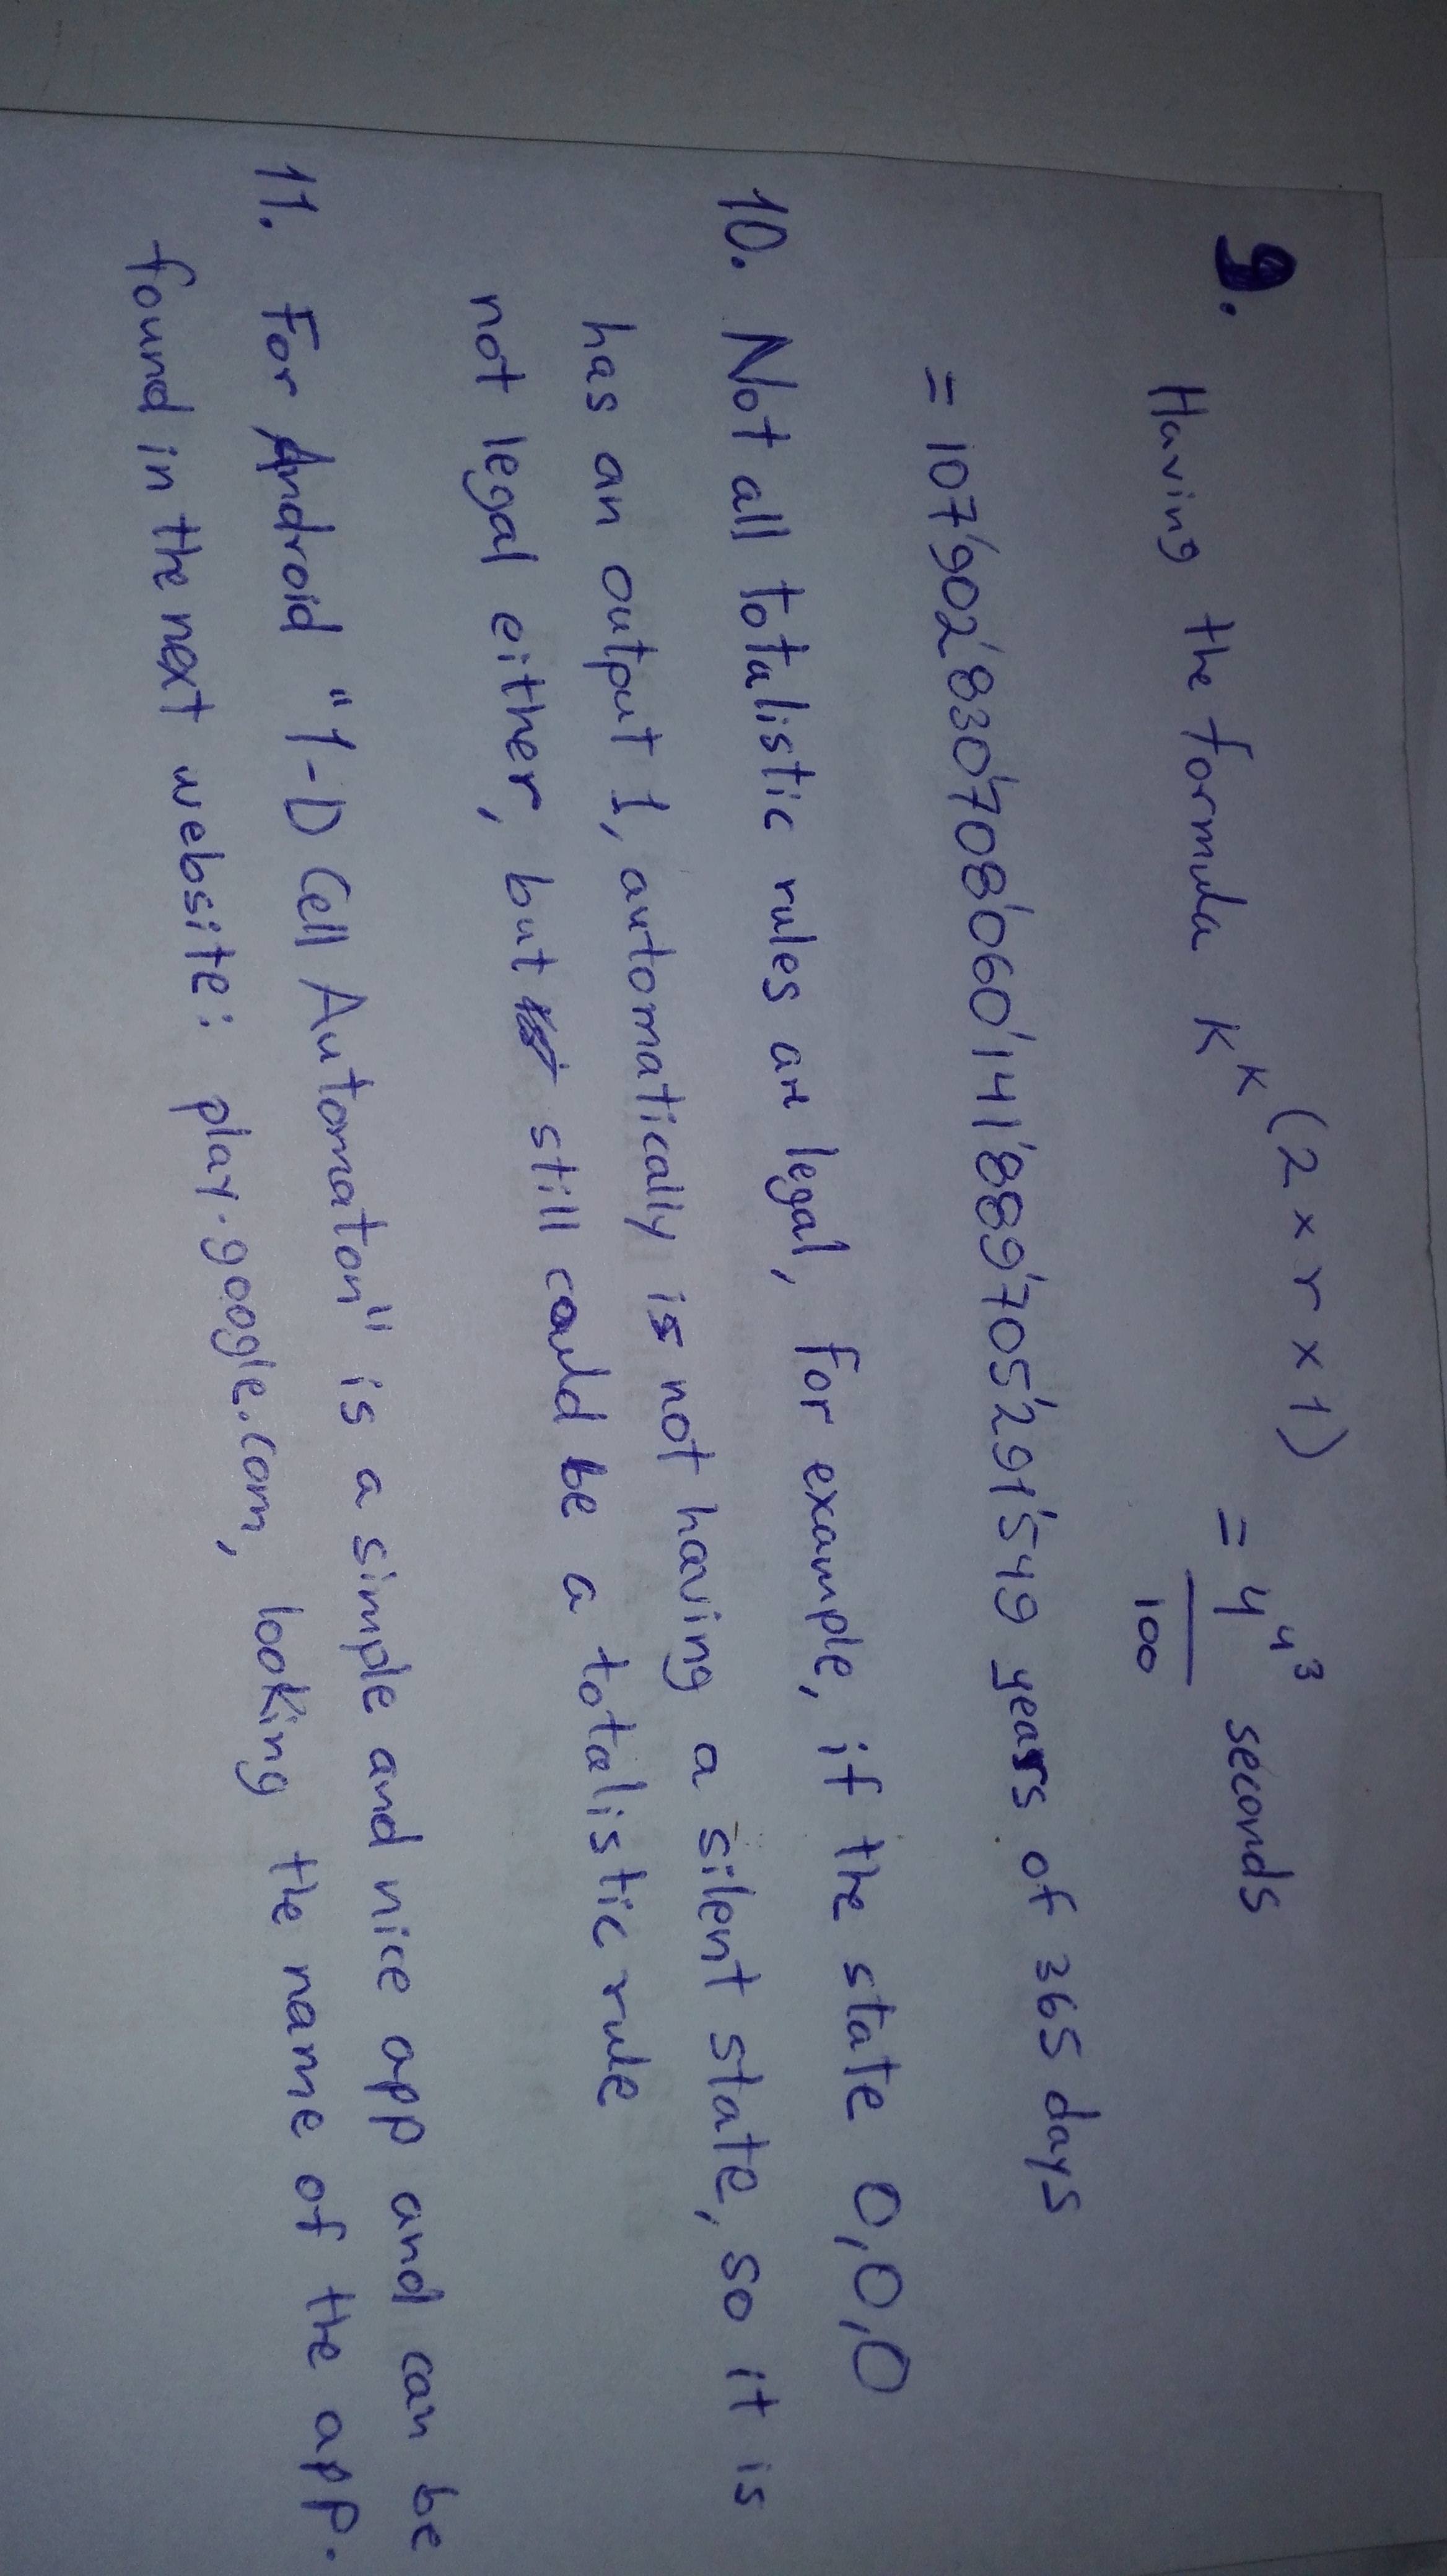 9. Having the formula K^K^(2 × r × 1) = 4^4^3 / 100 seconds
= 107'902'830'708'060'141'889'705'291'549 years of 365 days
10. Not all totalistic rules are legal, for example, if the state 0,0,0
has an output 1, automatically is not having a silent state, so it is
not legal either, but still could be a totalistic rule
11. For Android "1-D Cell Automaton" is a simple and nice app and can be
found in the next website: play.google.com, looking the name of the app.